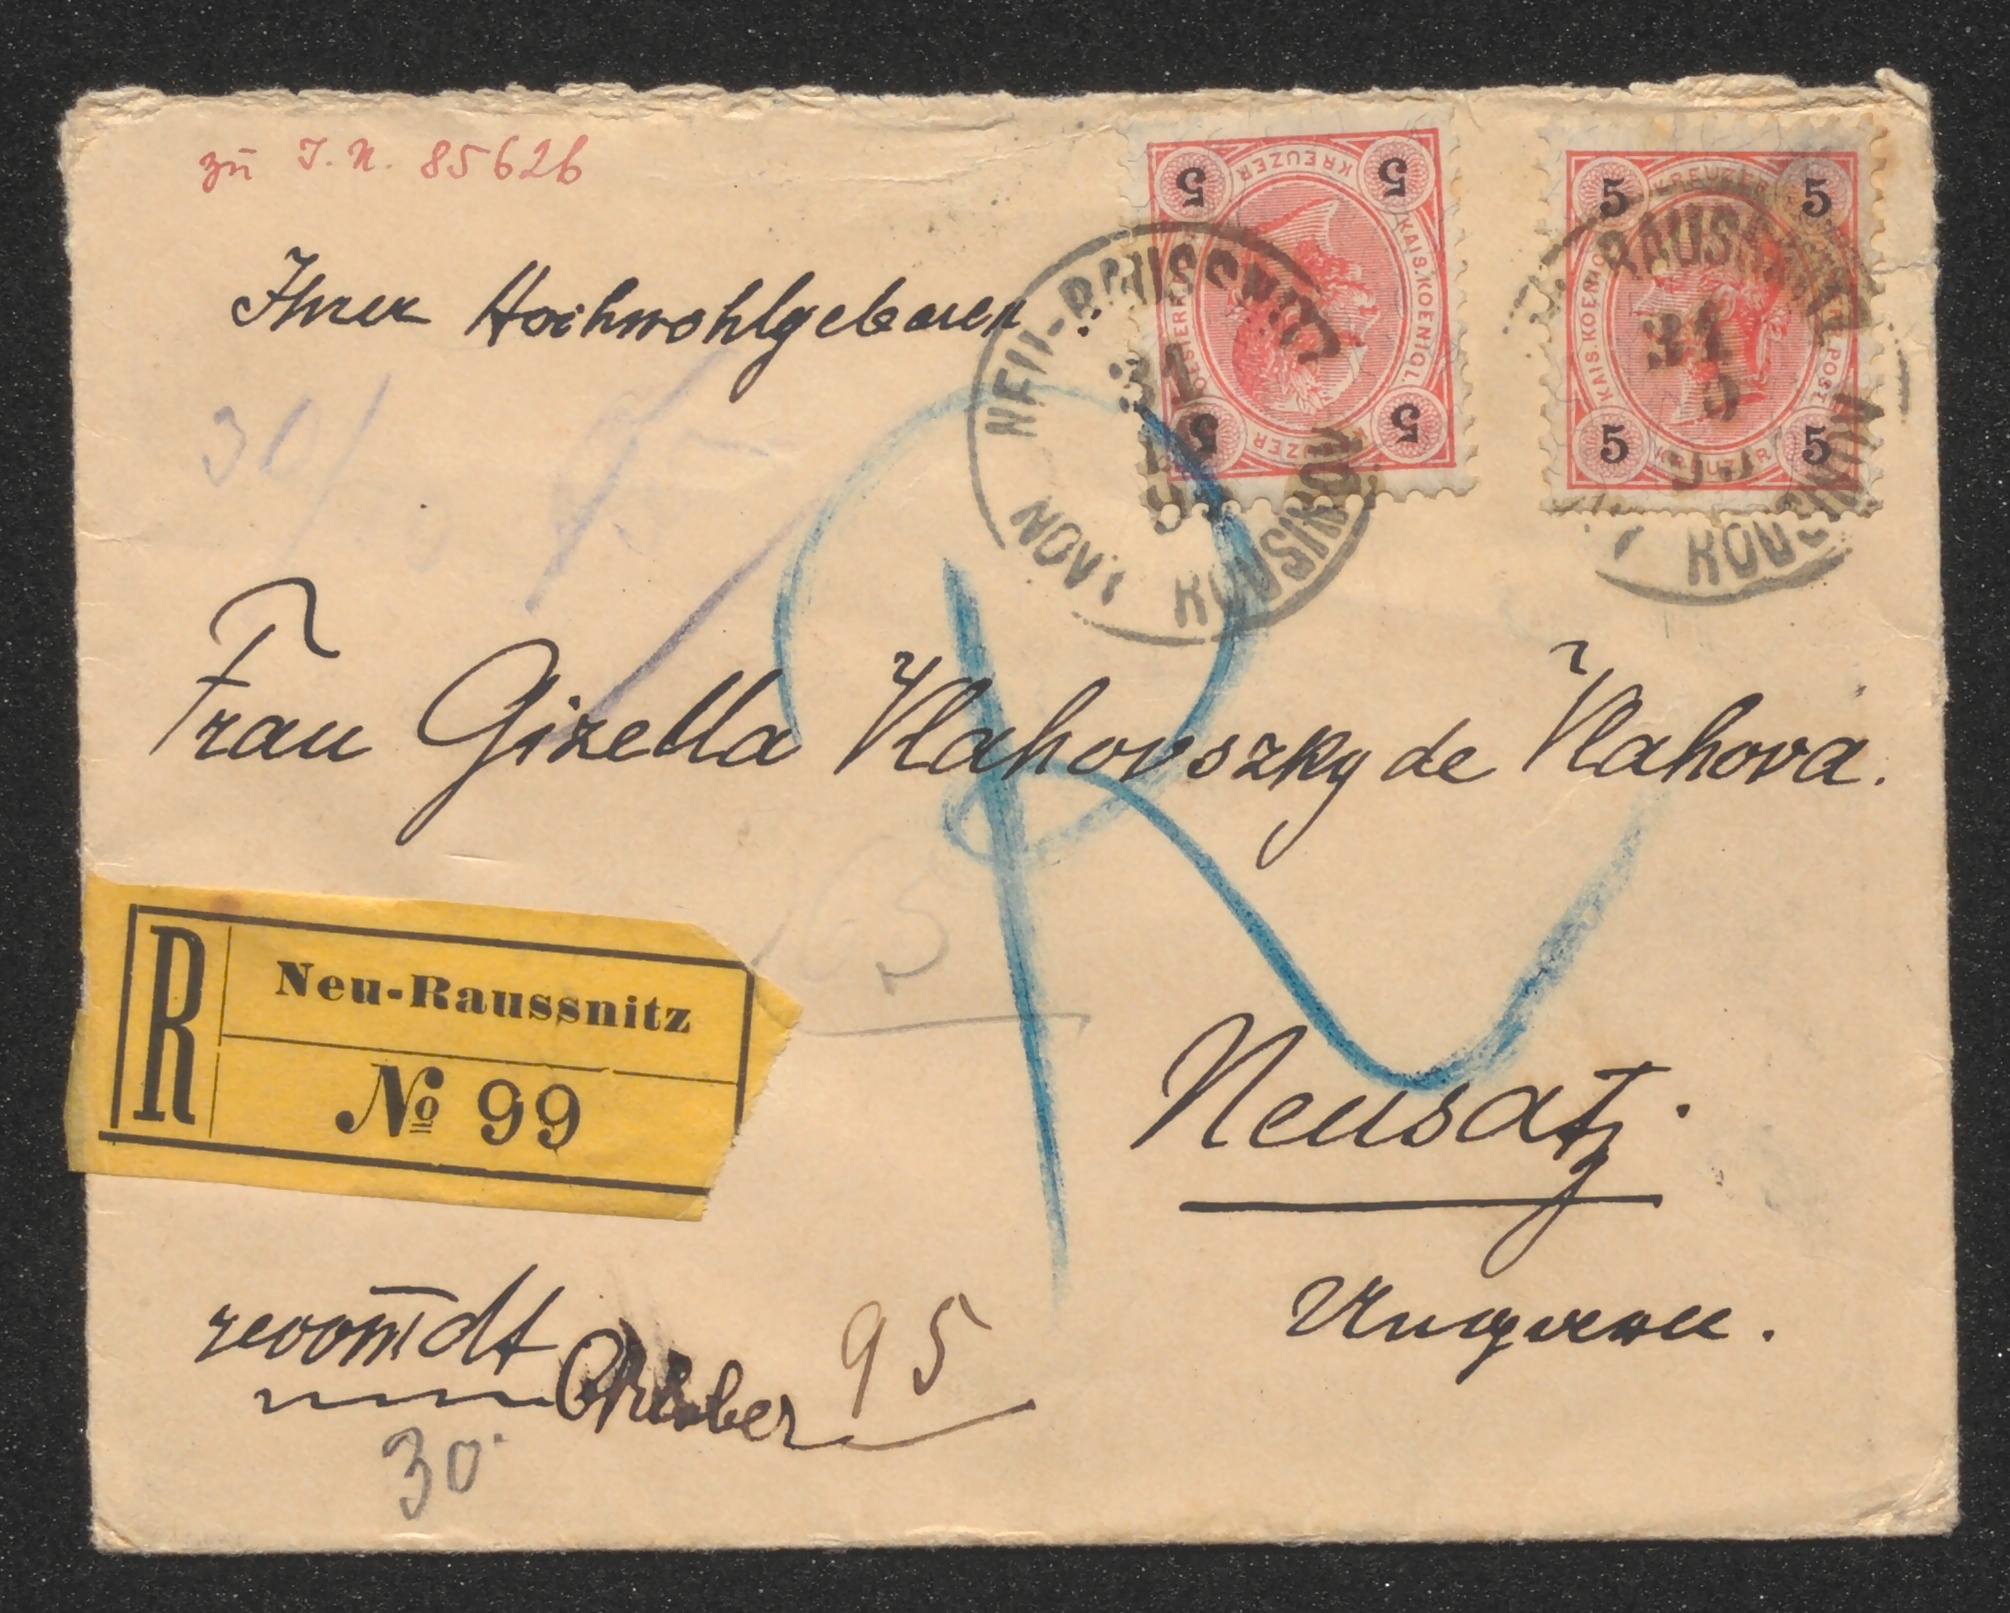 zu I. N. 85626
5 KREUZER 5
KAIS. KOENIGL. OESTERR.
5 KREUZER 5
5 KREUZER 5
KAIS. KOENIGL. OESTERR. POST
5 KREUZER 5
Ihrer Hochwohlgeboren
NEU-RAUSSNITZ
31
10
95
NOVÝ ROUSINOV
RAUSSNITZ
31
ROUSINOV
30/
Frau Gizella Vlahovszky de Vlahova.
R
65
R Neu-Raussnitz
№ 99
Neusatz.
Ungarn.
recomdt
October 95
30.